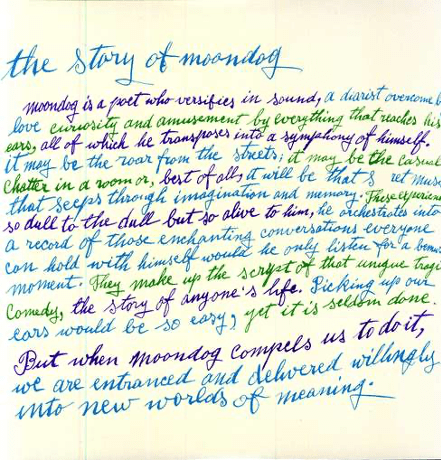 the story of moondog
moondog is a poet who versifies in sound, a diarist overcome b
love curiosity and amusement by everything that reaches his
ears, all of which he transposes into a symphony of himself.
it may be the roar from the streets; it may be the casual
chatter in a room or, best of all, it will be that s ret music
that seeps through imagination and memory. These experienc
so dull to the dull but so alive to him, he orchestrates into
a record of those enchanting conversations everyone
can hold with himself would he only listen for a
moment. They make up the script of that unique tragi
comedy, the story of anyone's life. Picking up our
ears would be so easy, yet it is seldom done.
But when moondog compels us to do it,
we are entranced and delivered willingly
into new worlds of meaning.